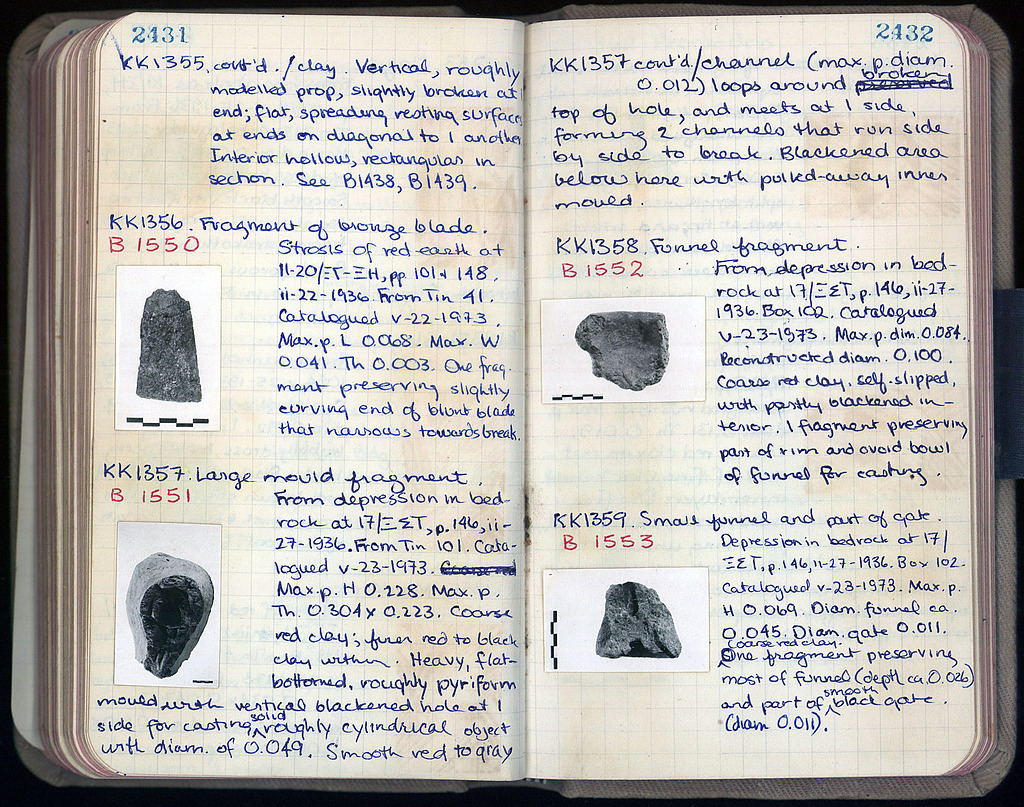 2431
KK1355, cont'd. / clay. Vertical, roughly
modelled prop, slightly broken at
end; flat, spreading resting surfaces
at ends on diagonal to 1 another
Interior hollow, rectangular in
section. See B1438, B1439.
KK1356. Fragment of bronze blade.
B 1550
Strosis of red earth at
11-20/ΞΓ-ΞΗ, pp 101 + 148,
ii-22-1936. From Tin 41.
Catalogued v-22-1973.
Max. p. L 0.068. Max. W
0.041. Th 0.003. One frag-
ment preserving slightly
curving end of blunt blade
that narrows towards break.
KK1357. Large mould fragment.
B 1551
From depression in bed-
rock at 17/ΞΣΤ, p. 146, ii-
27-1936. From Tin 101. Cata-
logued v-23-1973. Coarse red
Max. p. H 0.228. Max. p.
Th. 0.304 x 0.223. Coarse
red clay; finer red to black
clay within. Heavy, flat-
bottomed, roughly pyriform
mould with vertical blackened hole at 1
side for casting solid roughly cylindrical object
with diam. of 0.049. Smooth red to gray
2432
KK1357 cont'd / channel (max. p. diam.
0.012) loops around broken preserved
top of hole, and meets at 1 side,
forming 2 channels that run side
by side to break. Blackened area
below here with pulled-away inner
mould.
KK1358. Funnel fragment.
B 1552
From depression in bed-
rock at 17/ΞΣΤ, p. 146, ii-27-
1936. Box 102. Catalogued
v-23-1973. Max. p. dim. 0.084.
Reconstructed diam. 0.100.
Coarse red clay, self-slipped,
with partly blackened in-
terior. 1 fragment preserving
part of rim and ovoid bowl
of funnel for casting.
KK1359. Small funnel and part of gate.
B 1553
Depression in bedrock at 17/
ΞΣΤ, p. 146, ii-27-1936. Box 102.
Catalogued v-23-1973. Max. p.
H 0.069. Diam. funnel ca.
0.045. Diam. gate 0.011.
Coarse red clay.
One fragment preserving
most of funnel (depth ca. 0.026)
and part of smooth black gate.
(diam 0.011).